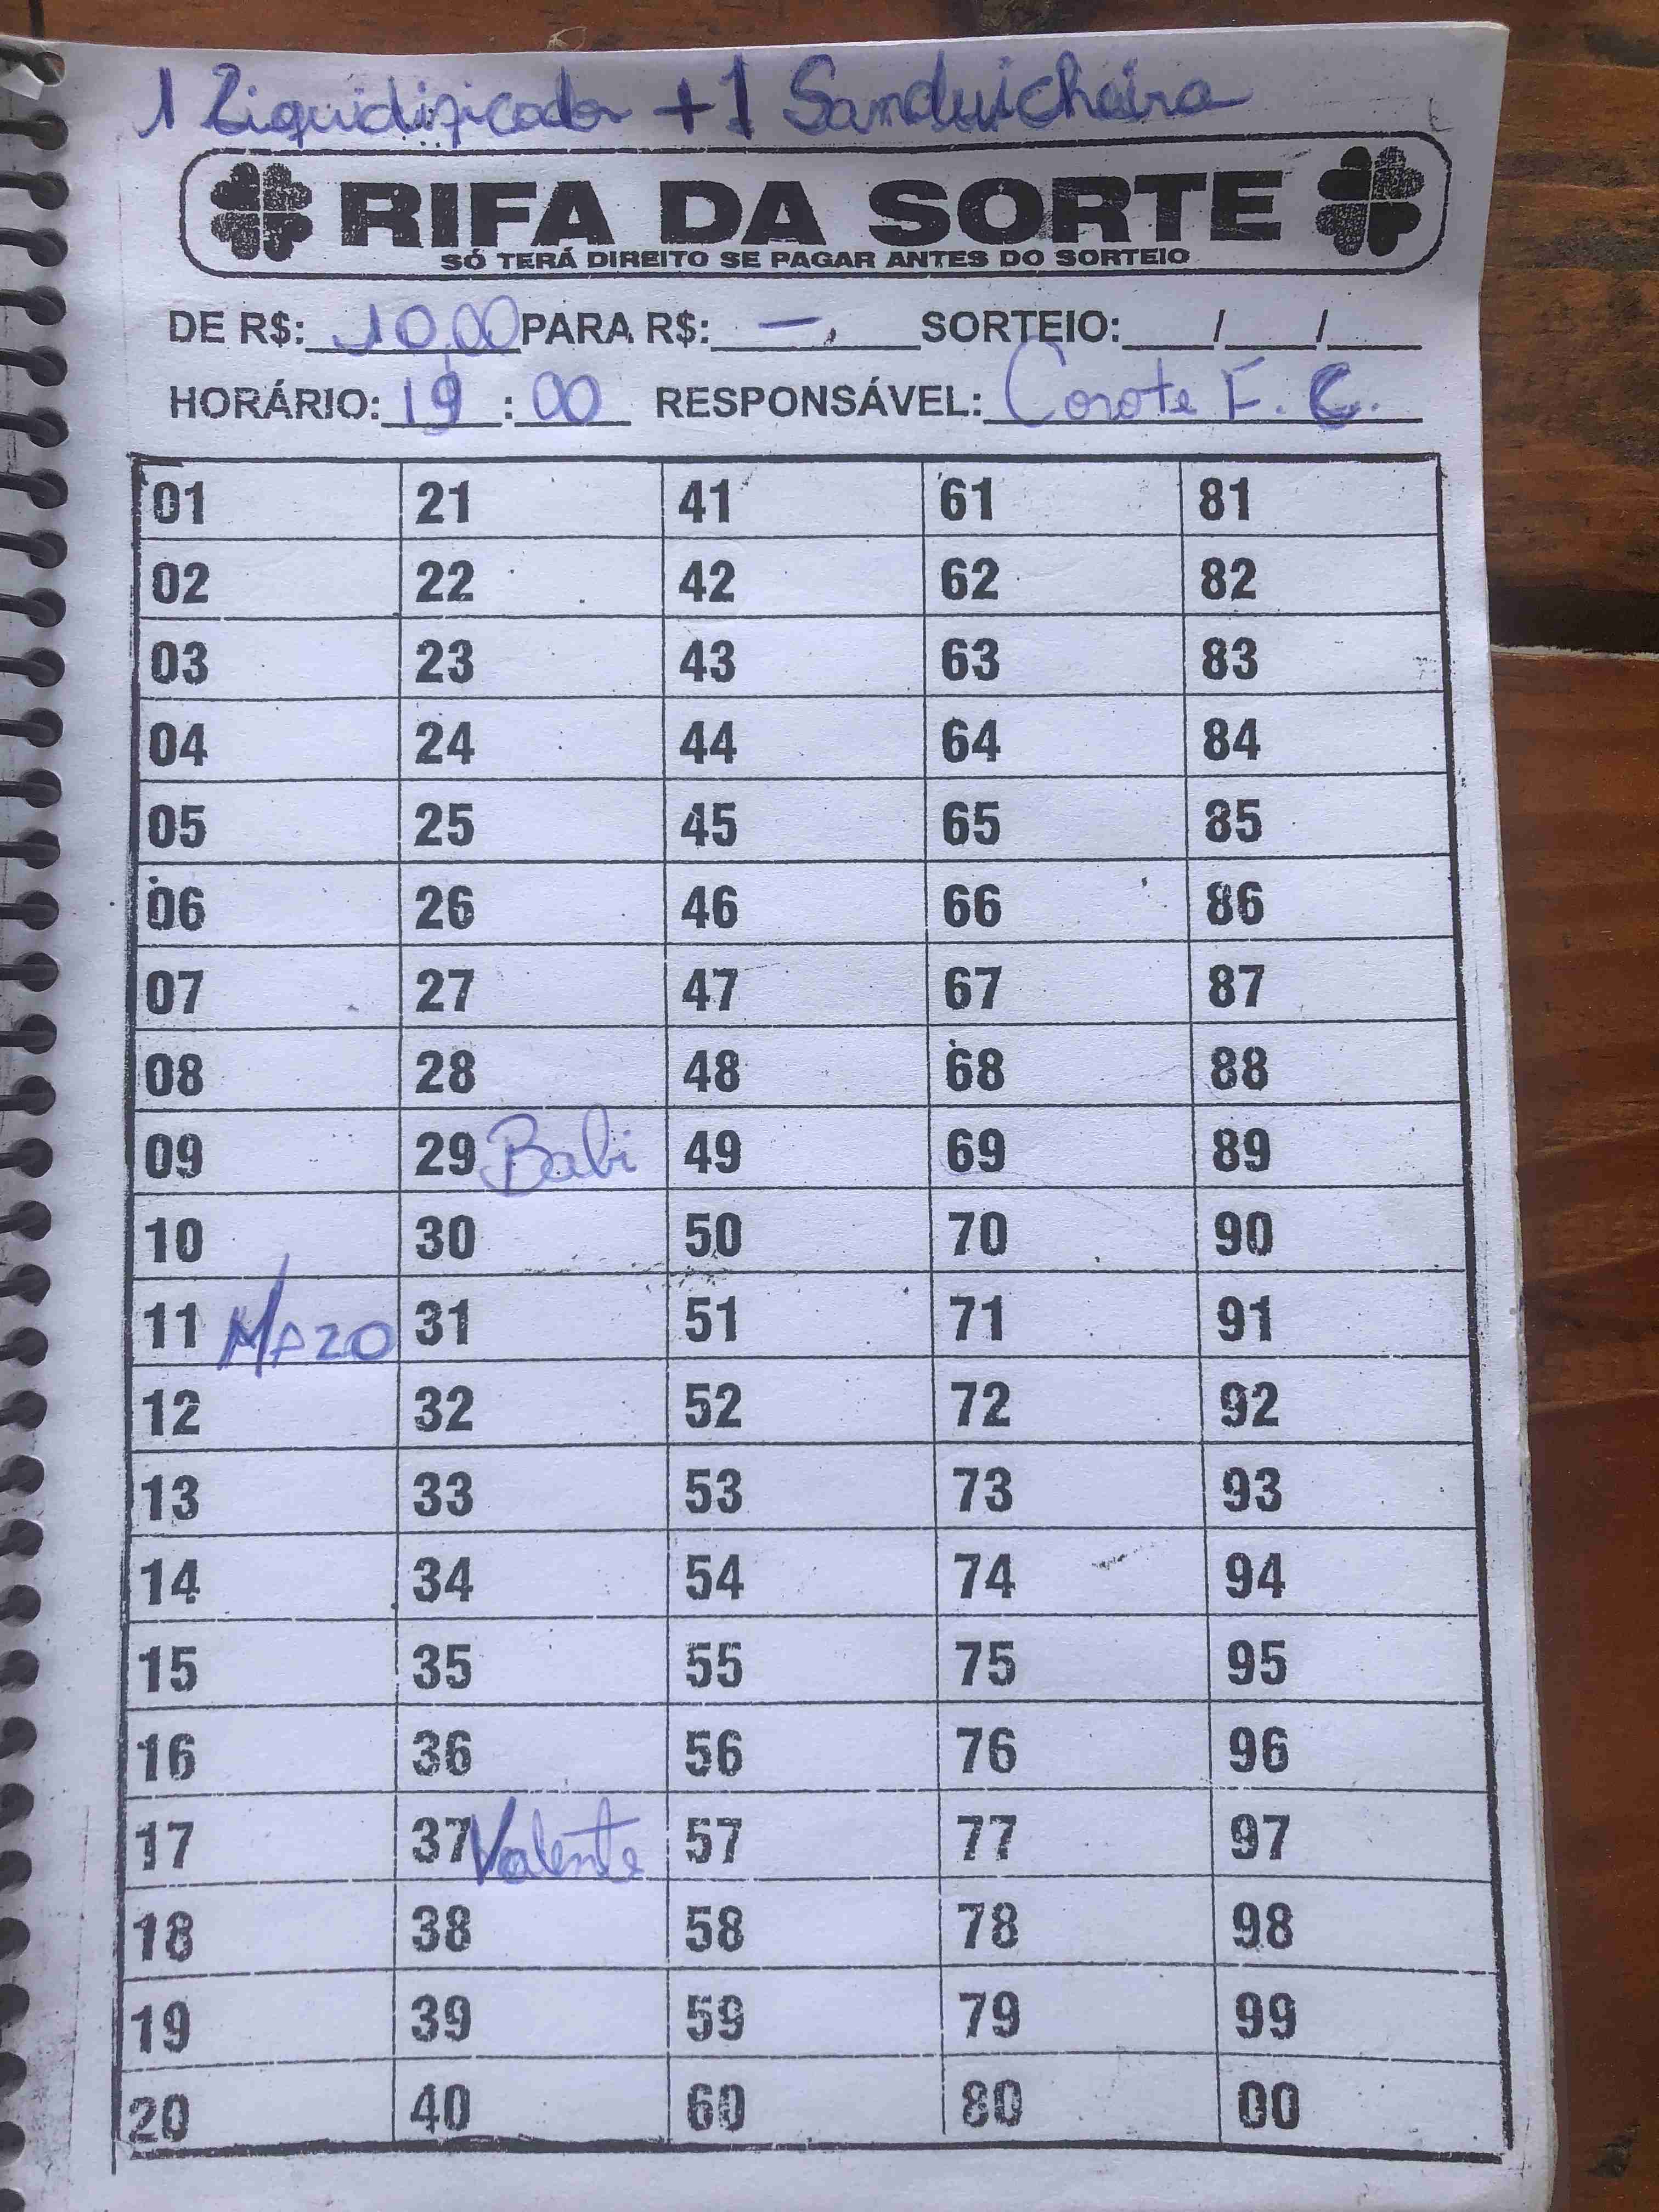 1 Liquidificador + 1 Sanduicheira
RIFA DA SORTE
SÓ TERÁ DIREITO SE PAGAR ANTES DO SORTEIO
DE R$: 10,00 PARA R$: —, SORTEIO: / /
HORÁRIO: 19 : 00 RESPONSÁVEL: Corote F. C.
01 21 41 61 81
02 22 42 62 82
03 23 43 63 83
04 24 44 64 84
05 25 45 65 85
06 26 46 66 86
07 27 47 67 87
08 28 48 68 88
09 29 Babi 49 69 89
10 30 50 70 90
11 MAZO 31 51 71 91
12 32 52 72 92
13 33 53 73 93
14 34 54 74 94
15 35 55 75 95
16 36 56 76 96
17 37 Valente 57 77 97
18 38 58 78 98
19 39 59 79 99
20 40 60 80 00